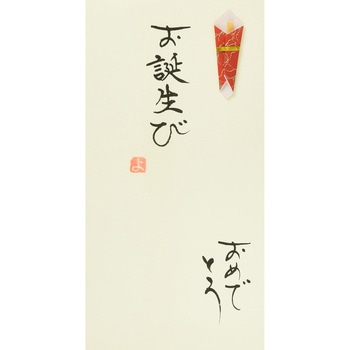 お誕生び
よ
おめで
とう